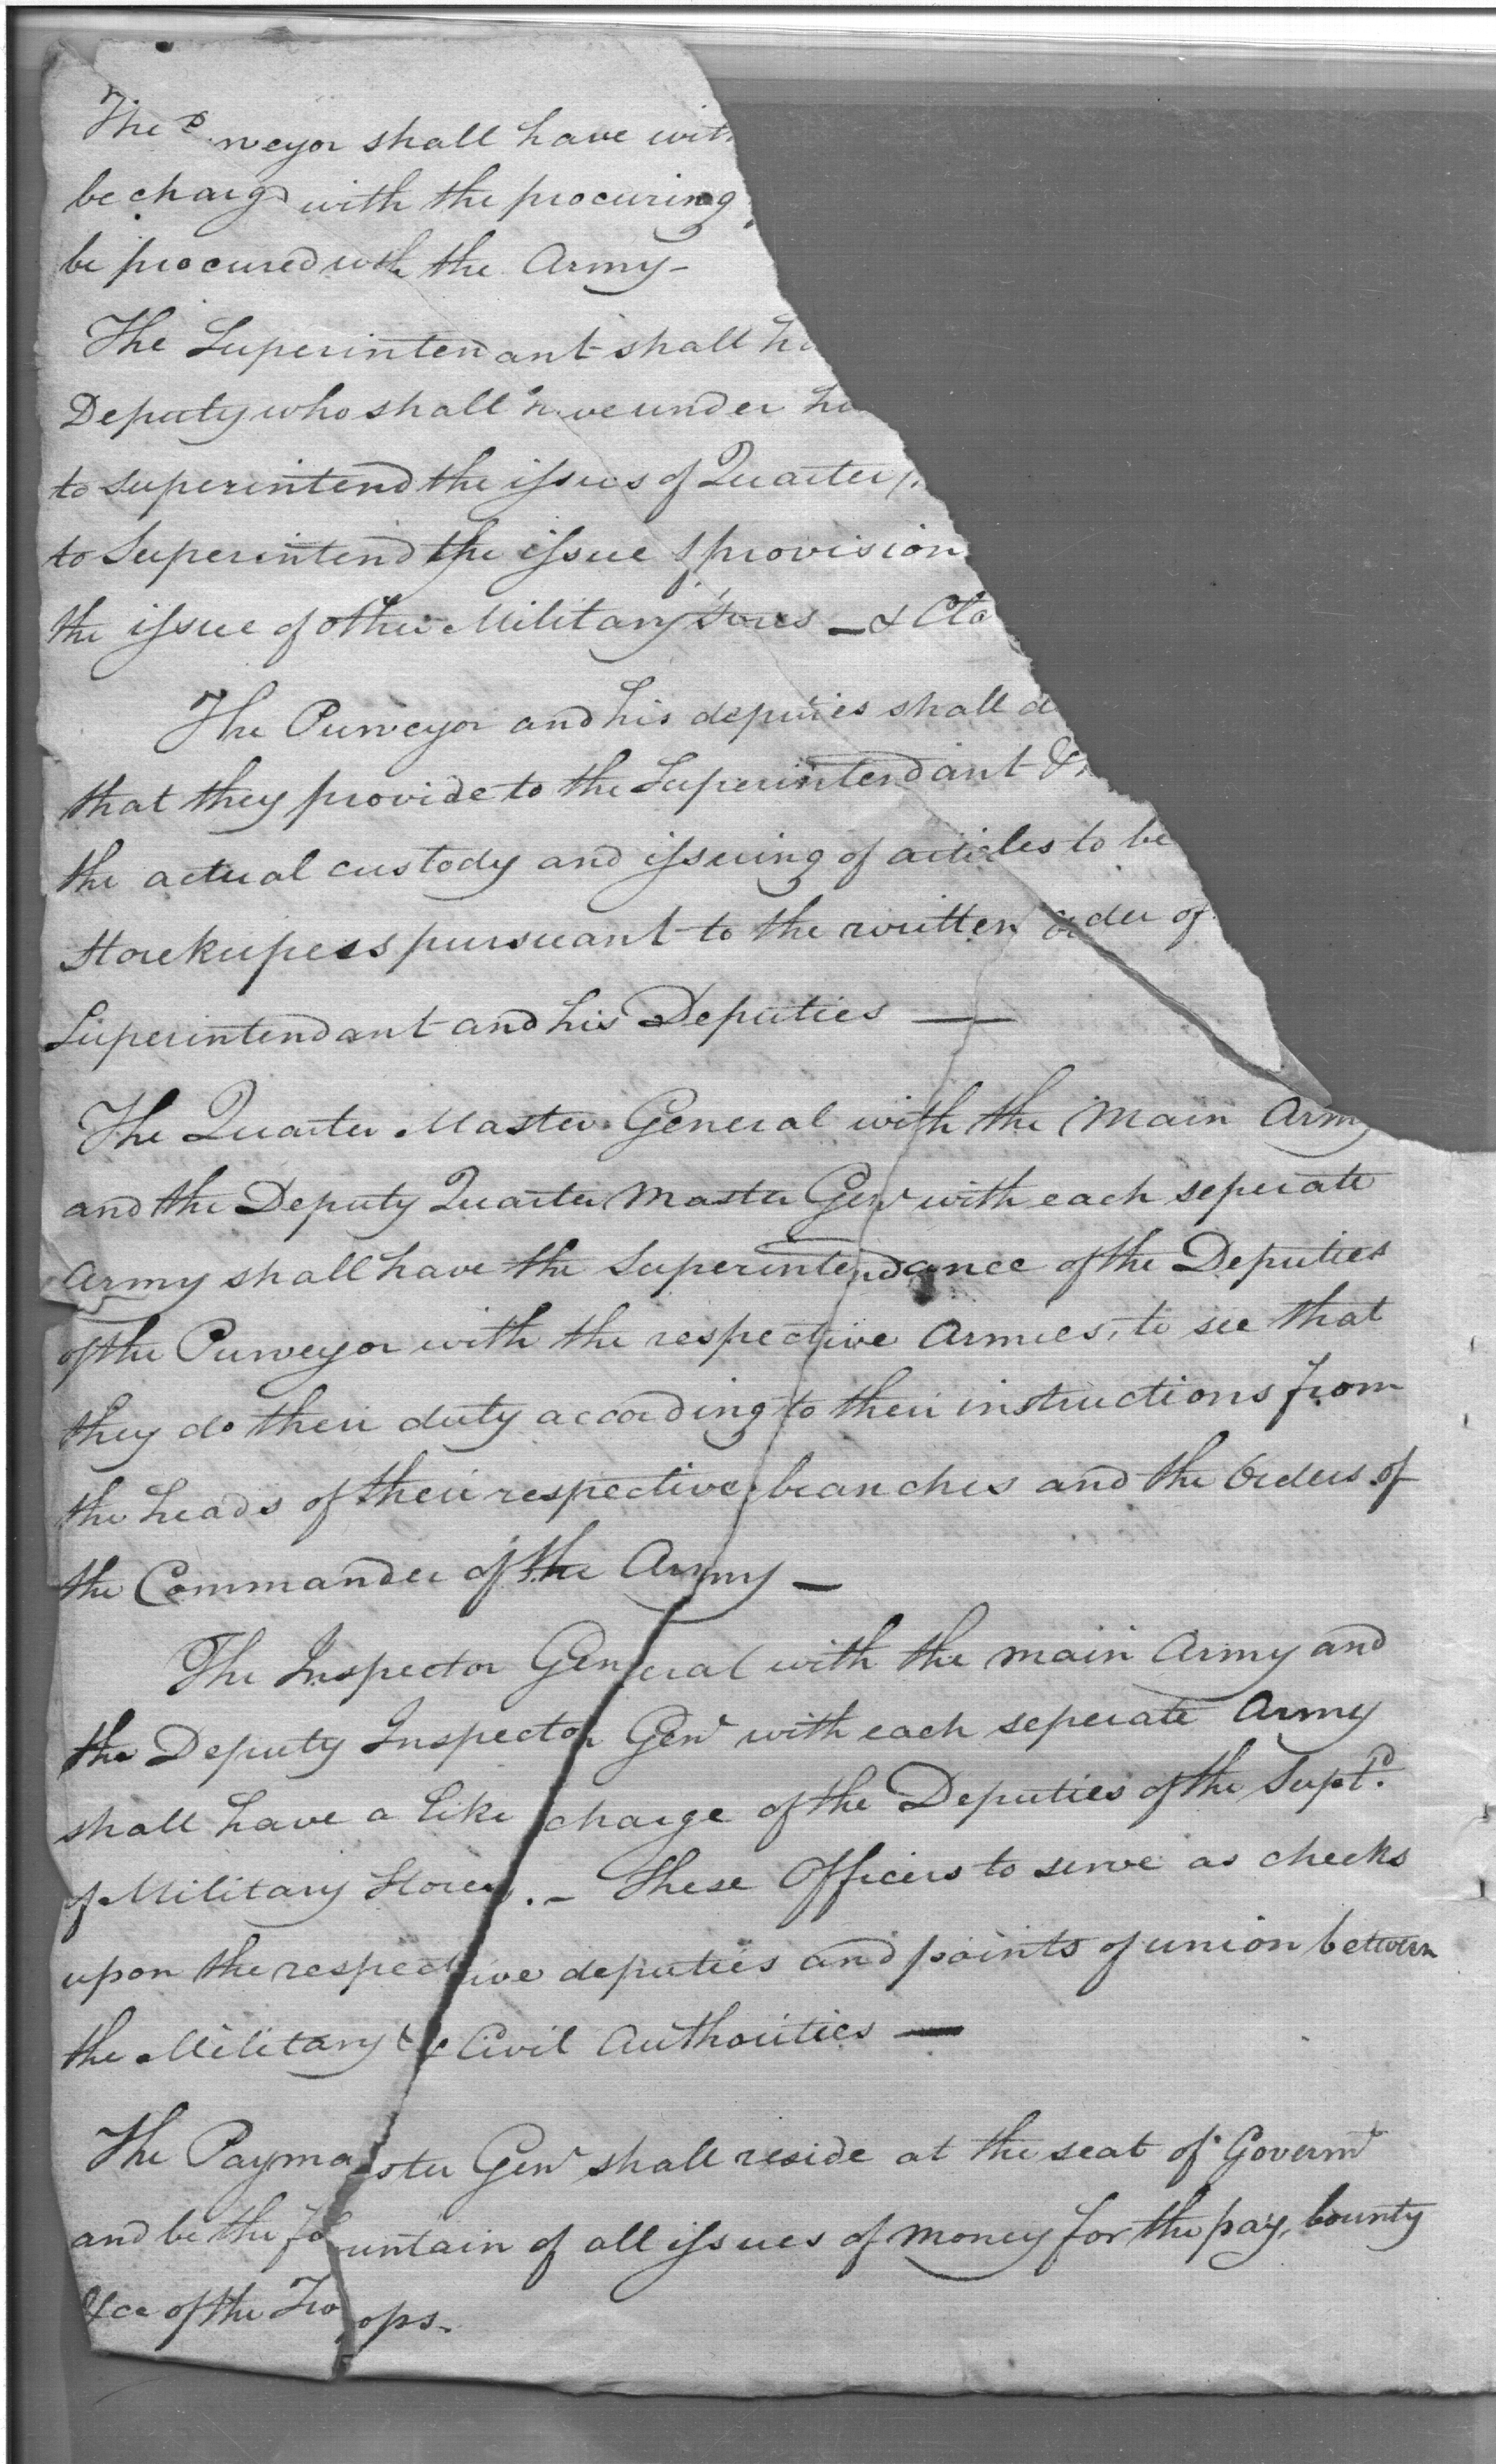 The Purveyor shall have with
be charg'd with the procuring
be procured with the Army –
The Superintendant shall
Deputy who shall have under
to superintend the issues of Quarter
to Superintend the issue of provision
the issue of other Military Stores – &
The Purveyor and his deputies shall
that they provide to the Superintendant &
the actual custody and issuing of articles to be
Storekeepers pursuant to the written order of
Superintendant and his Deputies —
The Quarter Master General with the Main Army
and the Deputy Quarter Master Genl with each seperate
Army shall have the Superintendance of the Deputies
of the Purveyor with the respective Armies, to see that
they do their duty according to their instructions from
the heads of their respective branches and the Orders of
the Commander of the Army –
The Inspector General with the main Army and
the Deputy Inspector Genl with each seperate Army
shall have a like charge of the Deputies of the Supt.d
of Military Stores. – These Officers to serve as checks
upon the respective deputies and points of union between
the Military & Civil Authorities —
The Paymaster Genl shall reside at the seat of Governmt
and be the fountain of all issues of money for the pay, bounty
&ca of the Troops.